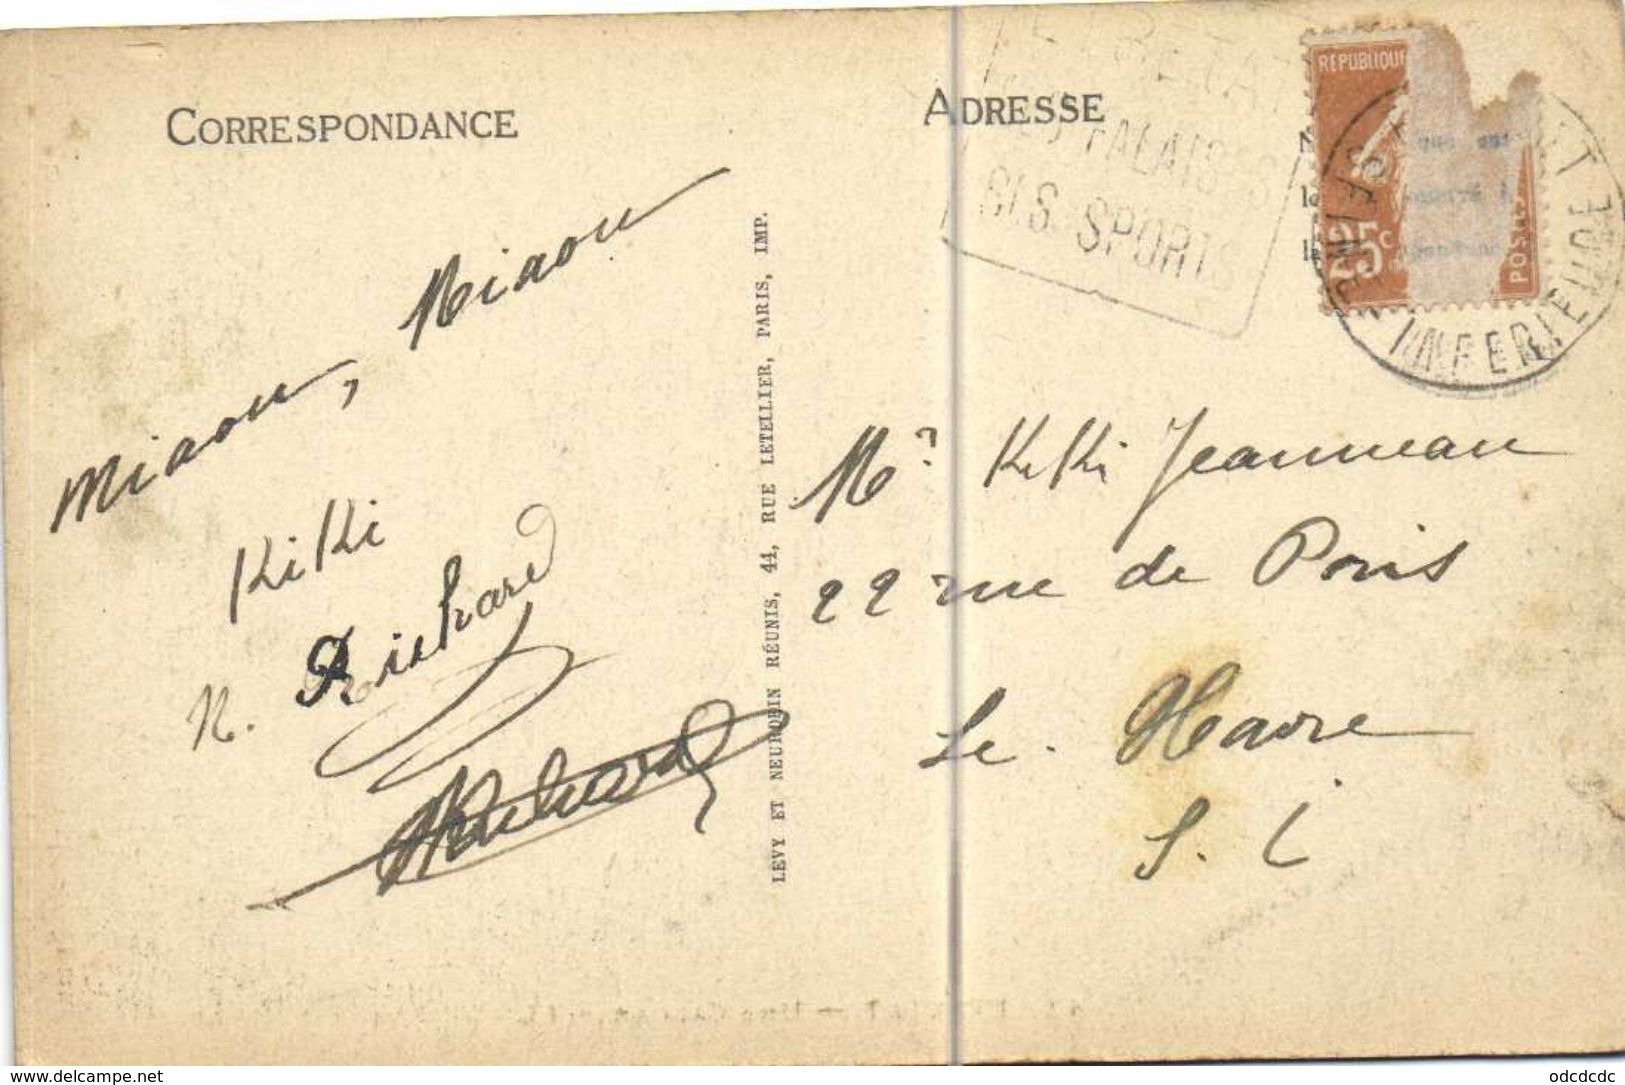 CORRESPONDANCE
Miaou, Miaou
KiKi
N. Richard
Richard
LEVY ET NEURDEIN RÉUNIS, 44, RUE LETELLIER, PARIS, IMP.
ADRESSE
ETRETAT
FALAISES
BAINS. SPORTS
REPUBLIQUE
25c
POSTES
SEINE INFERIEURE
Mr KiKi Jeanneau
22 rue de Paris
Le Havre
S. I
www.delcampe.net
odcdcdc